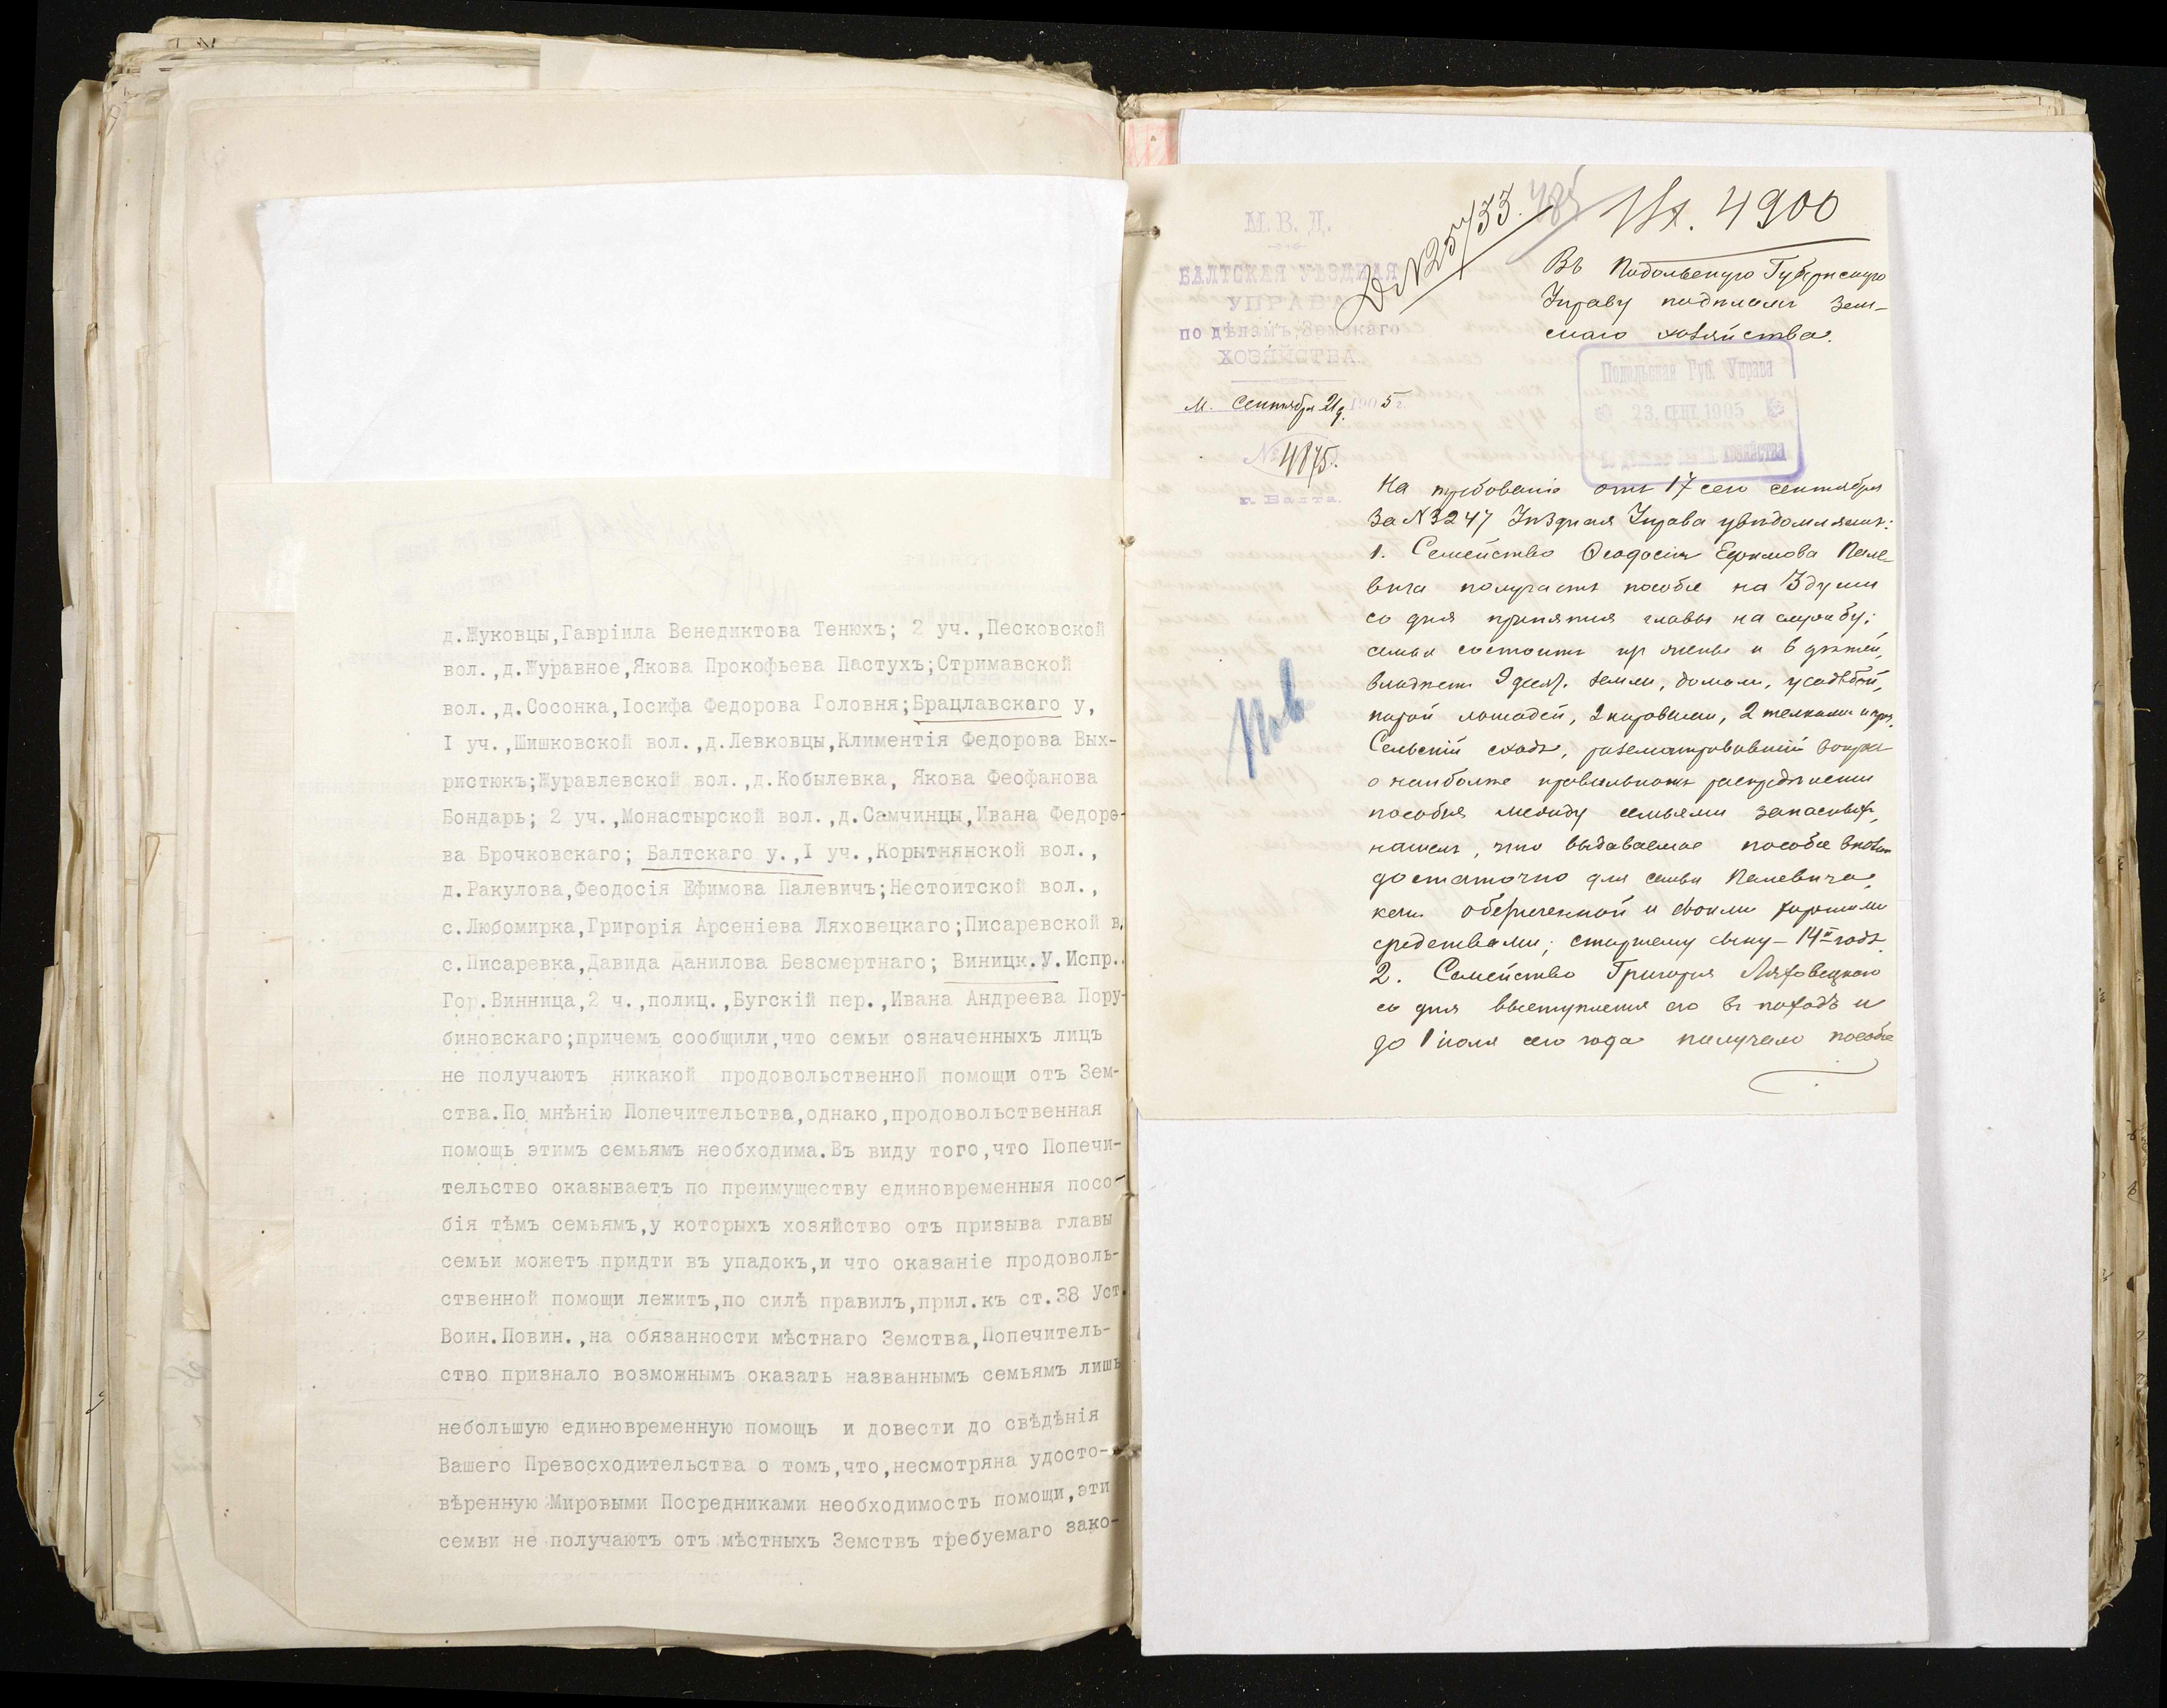 д.Жуковцы,Гавріила Венедиктова Тенюхъ; 2 уч.,Песковской
вол.,д.Журавное,Якова Прокофьева Пастухъ;Стримавской
вол.,д.Сосонка,Іосифа Федорова Головня;Брацлавскаго у,
I уч.,Шишковской вол.,д.Левковцы,Климентія Федорова Вых-
ристюкъ;Журавлевской вол.,д.Кобылевка, Якова Феофанова
Бондарь; 2 уч.,Монастырской вол.,д.Самчинцы,Ивана Федоро-
ва Брочковскаго; Балтскаго у.,I уч.,Корытнянской вол.,
д.Ракулова,Феодосія Ефимова Палевичъ;Нестоитской вол.,
с.Любомирка,Григорія Арсеніева Ляховецкаго;Писаревской в.
с.Писаревка,Давида Данилова Безсмертнаго; Виницк.У.Испр..
Гор.Винница,2 ч.,полиц.,Бугскій пер.,Ивана Андреева Пору-
биновскаго;причемъ сообщили,что семьи означенныхъ лицъ
не получаютъ никакой продовольственной помощи отъ Зем-
ства.По мнѣнію Попечительства,однако,продовольственная
помощь этимъ семьямъ необходима.Въ виду того,что Попечи-
тельство оказываетъ по преимуществу единовременныя посо-
бія тѣмъ семьямъ,у которыхъ хозяйство отъ призыва главы
семьи можетъ придти въ упадокъ,и что оказаніе продоволь-
ственной помощи лежитъ,по силѣ правилъ,прил.къ ст.38 Уст.
Воин.Повин.,на обязанности мѣстнаго Земства,Попечитель-
ство признало возможнымъ оказать названнымъ семьямъ лишь
небольшую единовременную помощь и довести до свѣдѣнія
Вашего Превосходительства о томъ,что,несмотряна удосто-
вѣренную Мировыми Посредниками необходимость помощи,эти
семви не получаютъ отъ мѣстныхъ Земствъ требуемаго зако-
485
Вх. 4900
Д. №25/33.
М. В. Д.
БАЛТСКАЯ УѢЗДНАЯ
УПРАВА
по дѣламъ Земскаго
ХОЗЯЙСТВА.
М. Сентября 21 д. 1905 г.
№ 4875.
г. Балта.
Въ Подольскую Губернскую
Управу по дѣламъ Зем-
скаго хозяйства.
Подольская Губ. Управа
23. СЕНТ. 1905
по дѣламъ Земск. Хозяйства
На требованіе отъ 17 сего сентября
за № 3247 Уѣздная Управа увѣдомляетъ:
1. Семейство Ѳеодосія Ефимова Пале-
вича получаетъ пособіе на 3 души
со дня принятія главы на службу;
семья состоитъ изъ жены и 6 дѣтей,
владѣетъ 9 дес. земли, домомъ, усадьбой,
парой лошадей, 2 коровами, 2 телками и проч.
Сельскій сходъ, разсматривавшій вопросъ
о наиболѣе правильномъ распредѣленіи
пособія между семьями запасныхъ,
нашелъ, что выдаваемое пособіе вполнѣ
достаточно для семьи Палевича,
обезпеченной и своими хорошими
средствами; старшему сыну – 14й годъ.
2. Семейство Григорія Ляховецкаго
со дня выступленія его въ походъ и
до 1 іюля сего года получало пособіе